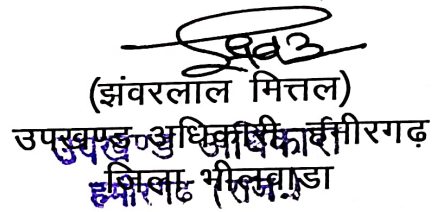 (झंवरलाल मित्तल)
उपखण्ड अधिकारी, हमीरगढ़
जिला-भीलवाडा
उपखण्ड अधिकारी
हमीरगढ़ (राज.)